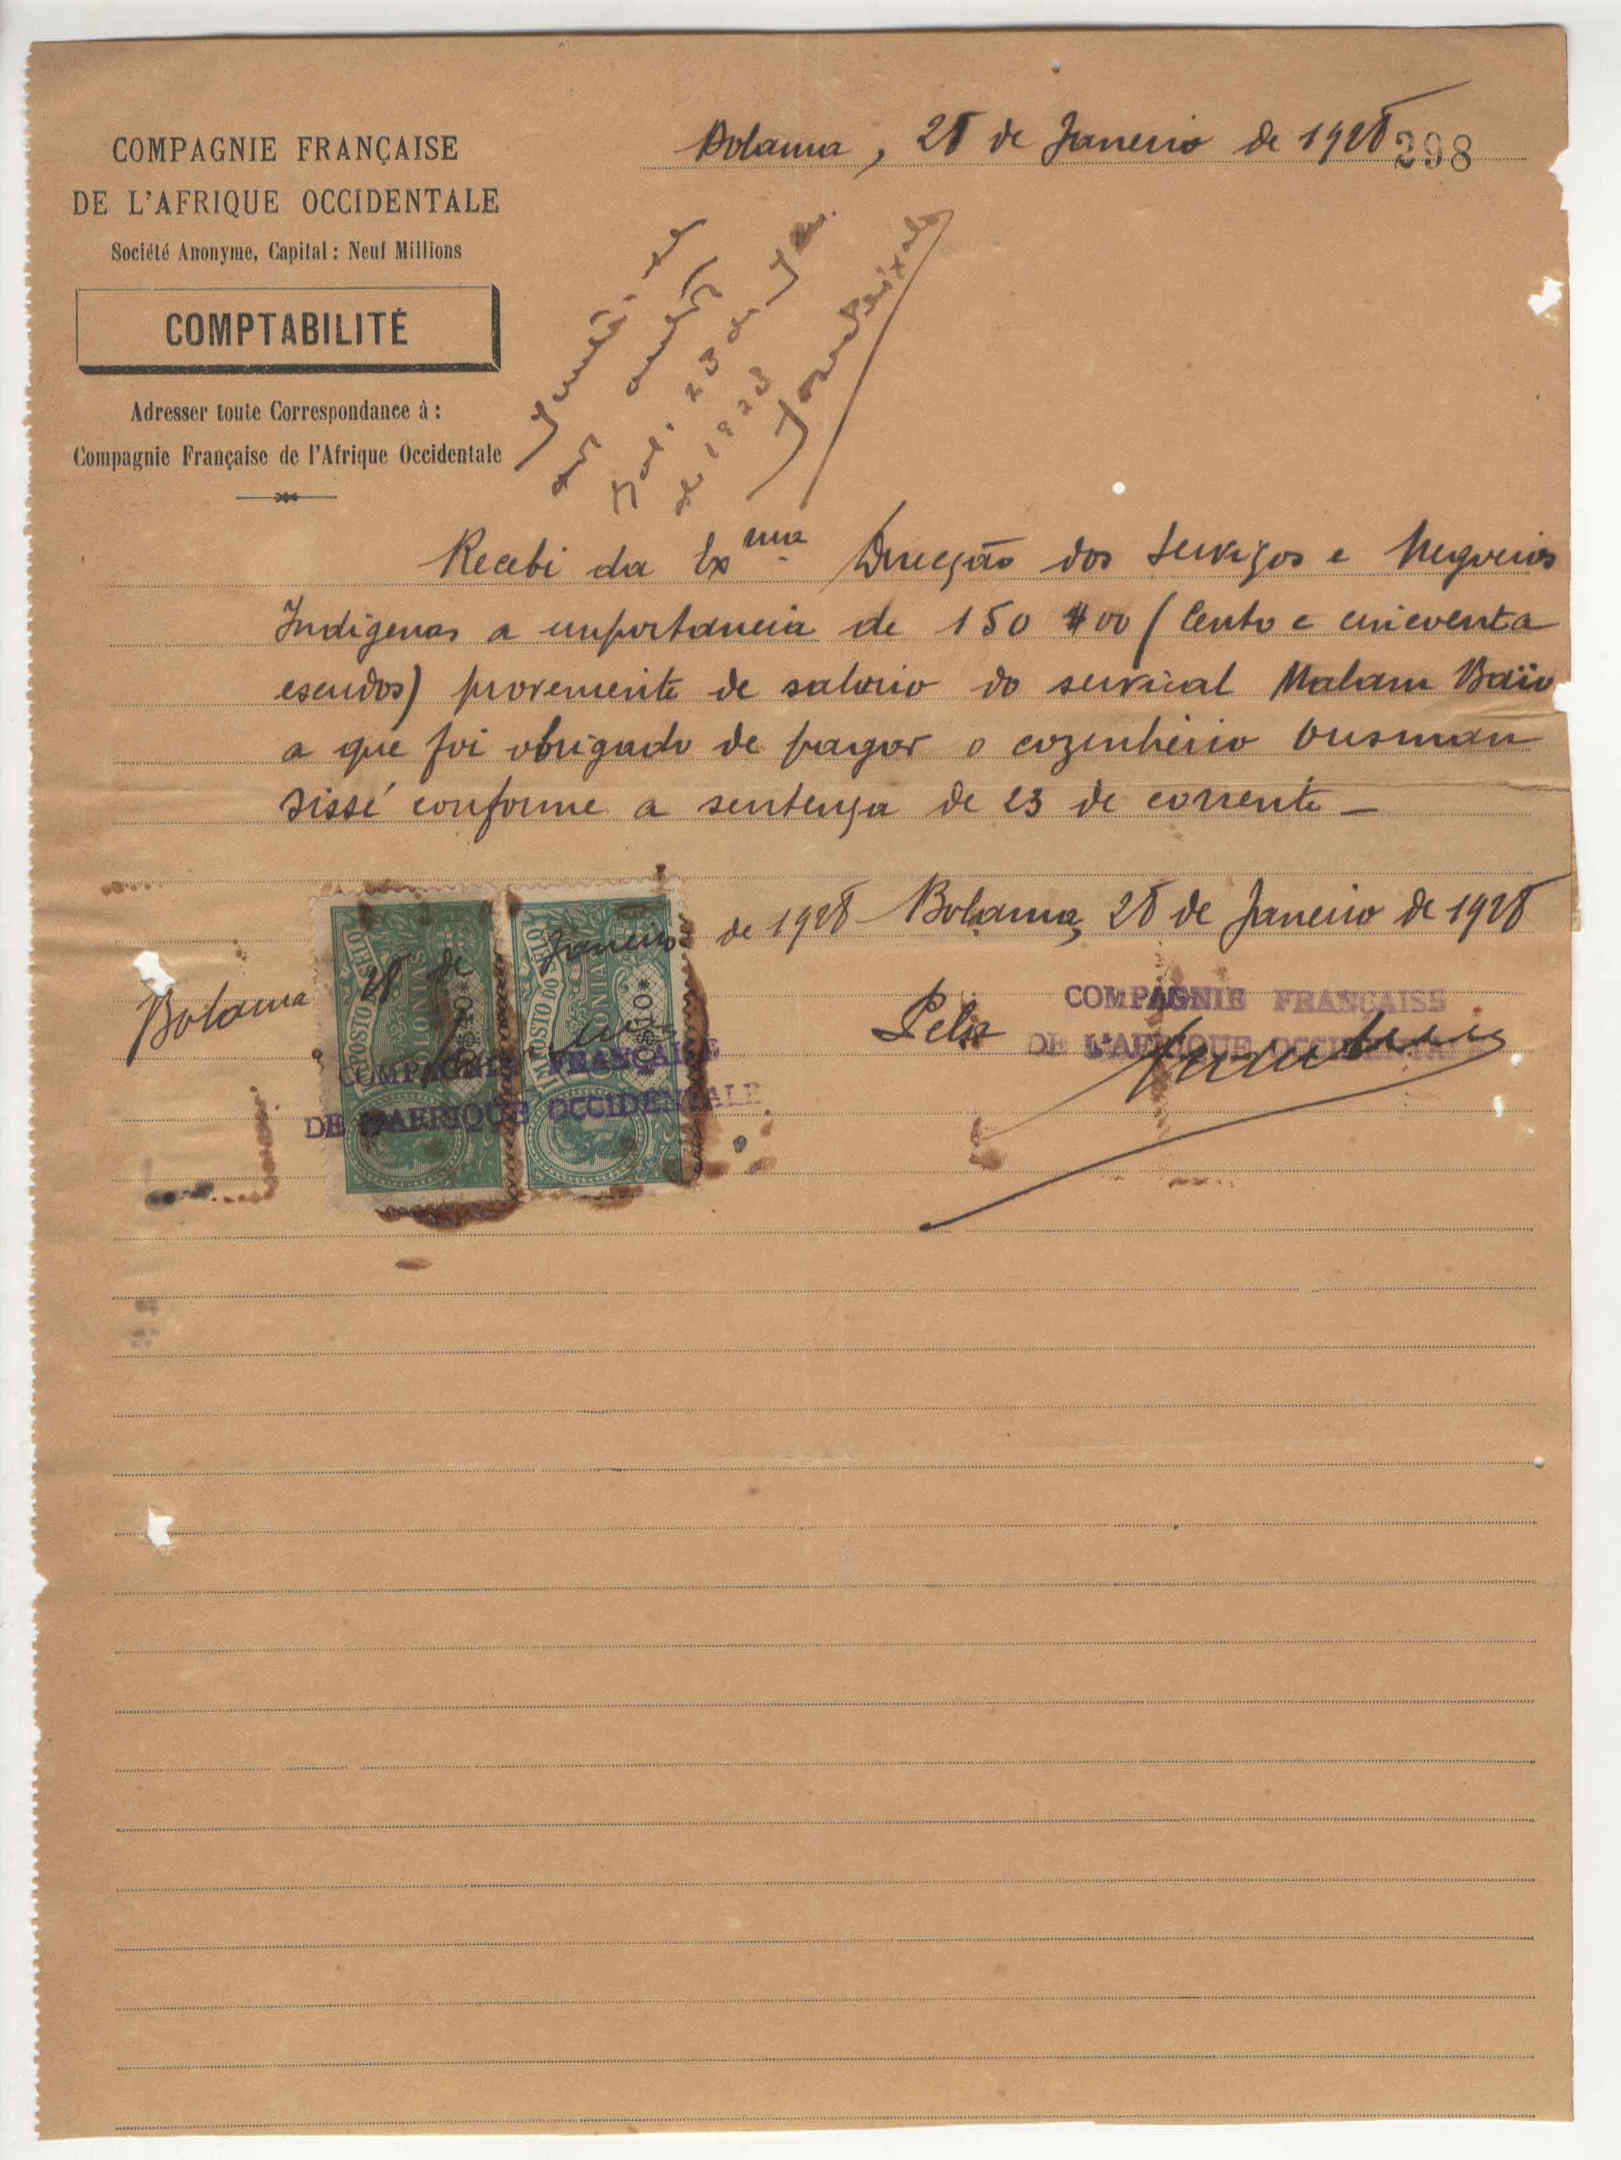 COMPAGNIE FRANÇAISE
DE L'AFRIQUE OCCIDENTALE
Société Anonyme, Capital : Neuf Millions
COMPTABILITÉ
Adresser toute Correspondance à :
Compagnie Française de l'Afrique Occidentale
Bolama, 28 de Janeiro de 1928
298
Junte-se
aos autos
Bol. 23 de Jan.
de 1928
Recebi da Exma Direcção dos Serviços e Negocios
Indigenas a importancia de 150$00 (Cento e cincoenta
escudos) proveniente de salario do serviçal Malam Baïo
a que foi obrigado de pagar o cozinheiro Ousman
Sissé conforme a sentença de 23 de corrente _
Bolama 28 de Janeiro de 1928
Bolama, 28 de Janeiro de 1928
IMPOSTO DO SELO
COLONIAS
*$10*
IMPOSTO DO SELO
COLONIAS
*$10*
COMPAGNIE FRANÇAISE
DE L'AFRIQUE OCCIDENTALE
Pela
COMPAGNIE FRANÇAISE
DE L'AFRIQUE OCCIDENTALE